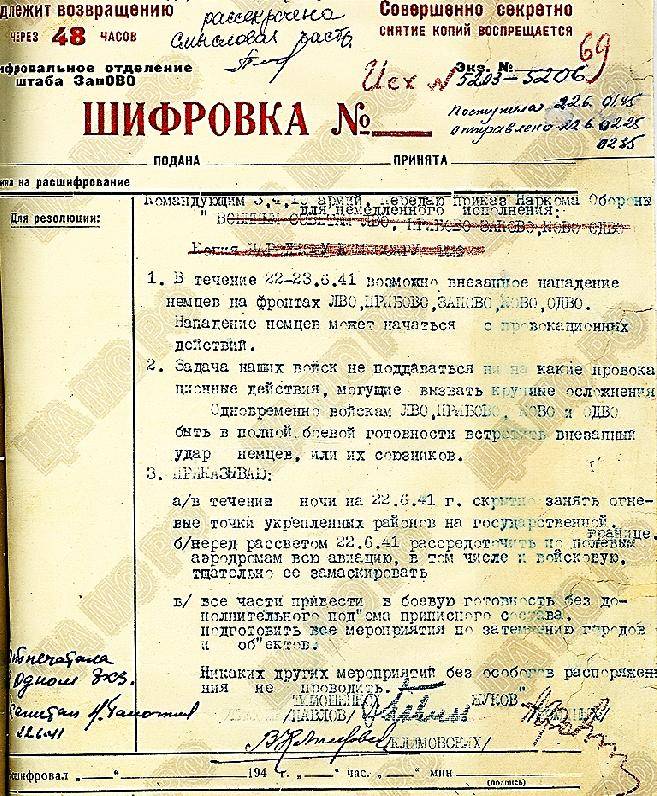 длежит возвращению
ЧЕРЕЗ 48 ЧАСОВ
рассекречено
Смысловая часть
Совершенно секретно
СНЯТИЕ КОПИЙ ВОСПРЕЩАЕТСЯ
69
ифровальное отделение
штаба ЗапОВО
Экз. №
Исх N 5203-5206
ШИФРОВКА №
Поступила 22.6. 01.45
отправлено 22.6 02.25
02.35
ПОДАНА ПРИНЯТА
на расшифрование
Для резолюции:
Командующим 3,4,10 армий, Передаю приказ Наркома Обороны
для немедленного исполнения:
1. В течение 22-23.6.41 возможно внезапное нападение
немцев на фронтах ЛВО,ПРИБОВО,ЗАПОВО,КОВО,ОДВО.
Нападение немцев может начаться с провокационных
действий.
2. Задача наших войск не поддаваться ни на какие провока
ционные действия, могущие вызвать крупные осложнения
Одновременно войскам ЛВО,ПРИБОВО, КОВО и ОДВО
быть в полной боевой готовности встретить внезапный
удар немцев, или их союзников.
3. ПРИКАЗЫВАЮ:
а/в течение ночи на 22.6.41 г. скрытно занять огне-
вые точки укрепленных районов на государственной.
границе.
б/перед рассветом 22.6.41 рассредоточить по полевым
аэродромам всю авиацию, в том числе и войсковую.
тщательно ее замаскировать
в/ все части привести в боевую готовность без до-
полнительного под"ема приписного состава.
подготовить все мероприятия по затемнению городов
и об"ектов.
Никаких других мероприятий без особого распоряжен
ния не проводить.
ТИМОШЕНКО ЖУКОВ
/ПАВЛОВ/
/КЛИМОВСКИХ/
Отпечатано
в одном экз.
22.6.41
шифровал „ “ 194 г. „ “ час. „ “ мин
(подпись)